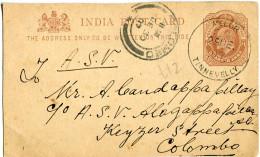 INDIA POST CARD
THE ADDRESS ONLY TO BE WRITTEN ON THIS SIDE
TINNEVELLY
A.S.V.
To
Mr. A. Candappa Pillay
c/o A.S.V. Alagappa Pillay
Keyzer Street
Colombo
112